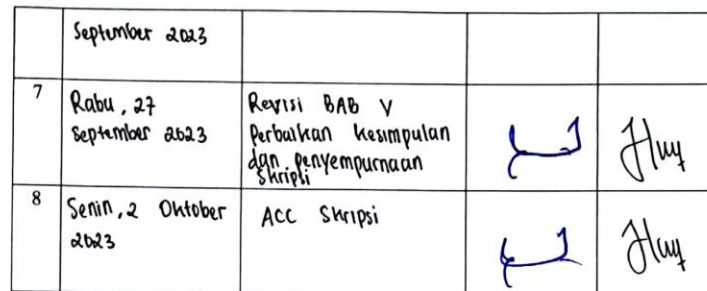 September 2023
7
Rabu, 27
September 2023
Revisi BAB V
Perbaikan kesimpulan
dan penyempurnaan
Skripsi
8
Senin, 2 Oktober
2023
ACC Skripsi